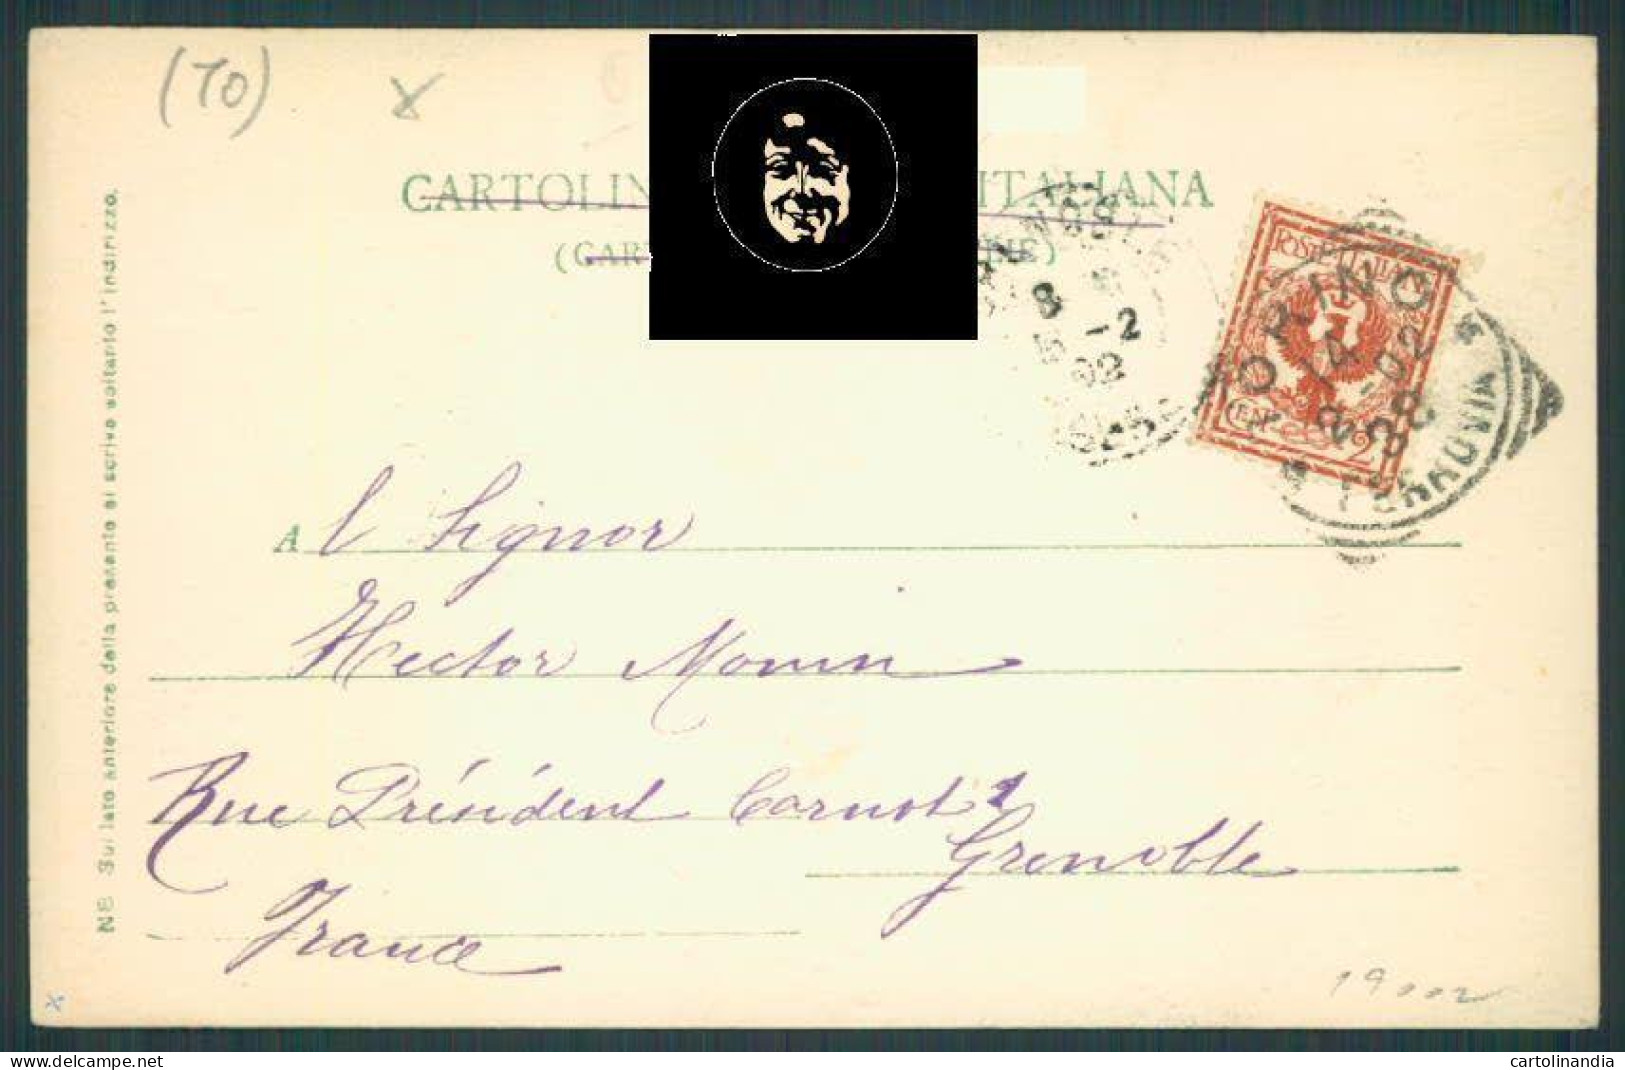 (TO)
CARTOLIN ITALIANA
(CAR
NB Sul lato anteriore della presente si scrive soltanto l'indirizzo.
POSTE ITALIANE
CENT. 2
TORINO
14
2-02
38
FERROVIA
8
5 -2
02
A l Signor
Hector Monin
Rue Président Carnot 1
Grenoble
France
19002
cartolinandia